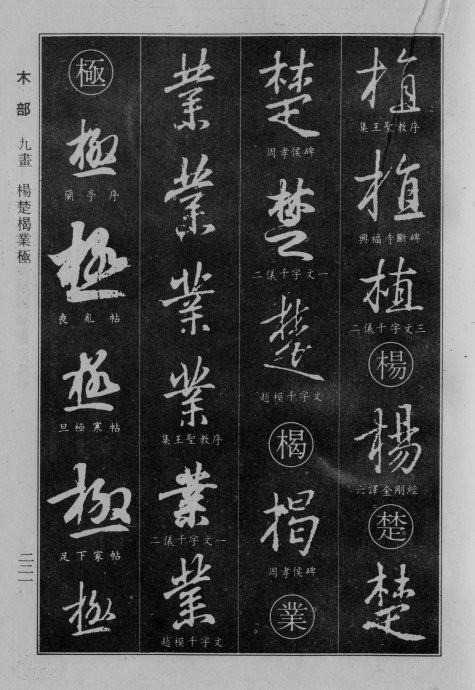 植
集王聖教序
植
興福寺斷碑
植
二儀千字文三
楊
楊
六譯金剛經
楚
楚
楚
周孝侯碑
楚
二儀千字文一
楚
趙模千字文
楬
楬
周孝侯碑
業
業
業
業
業
集王聖教序
業
二儀千字文一
業
趙模千字文
極
極
蘭亭序
極
喪亂帖
極
旦極寒帖
極
足下家帖
極
木部 九畫 楊楚楬業極
二二一